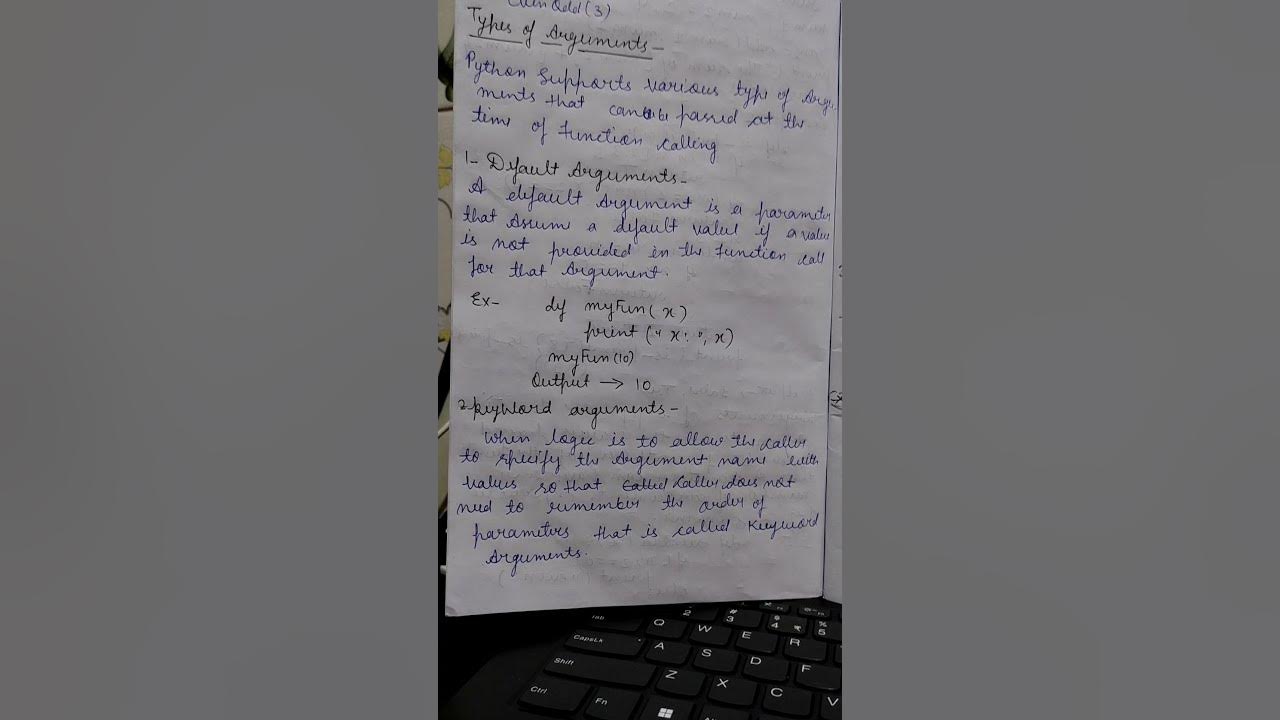 EvenOdd(3)
Types of Arguments-
Python Supports various type of Argu
ments that can be passed at the
time of function calling
1- Default Arguments-
A default Argument is a parameter
that Assume a default value if a value
is not provided in the function call
for that Argument.
Ex- def myFun(x)
print ("x: ", x)
myFun(10)
Output → 10
2 keyword arguments-
When logic is to allow the caller
to specify the Argument name with
values so that caller does not
need to remember the order of
parameters that is called Keyword
Arguments.
Tab 2 # 3 $ 4 ₹ % 5
Q W E R
CapsLk A S D F
Shift Z X C V
Ctrl Fn